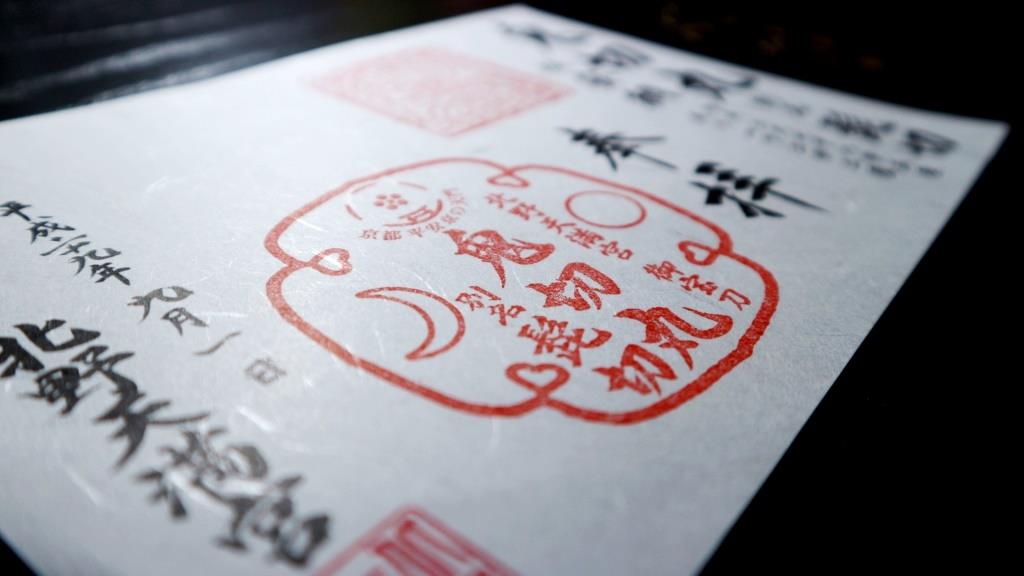 鬼切丸 髭切
奉拝
北野天満宮 御宝刀
鬼切丸
別名 髭切
京都 平安京の天門
平成廿九年 九月一日
北野天満宮